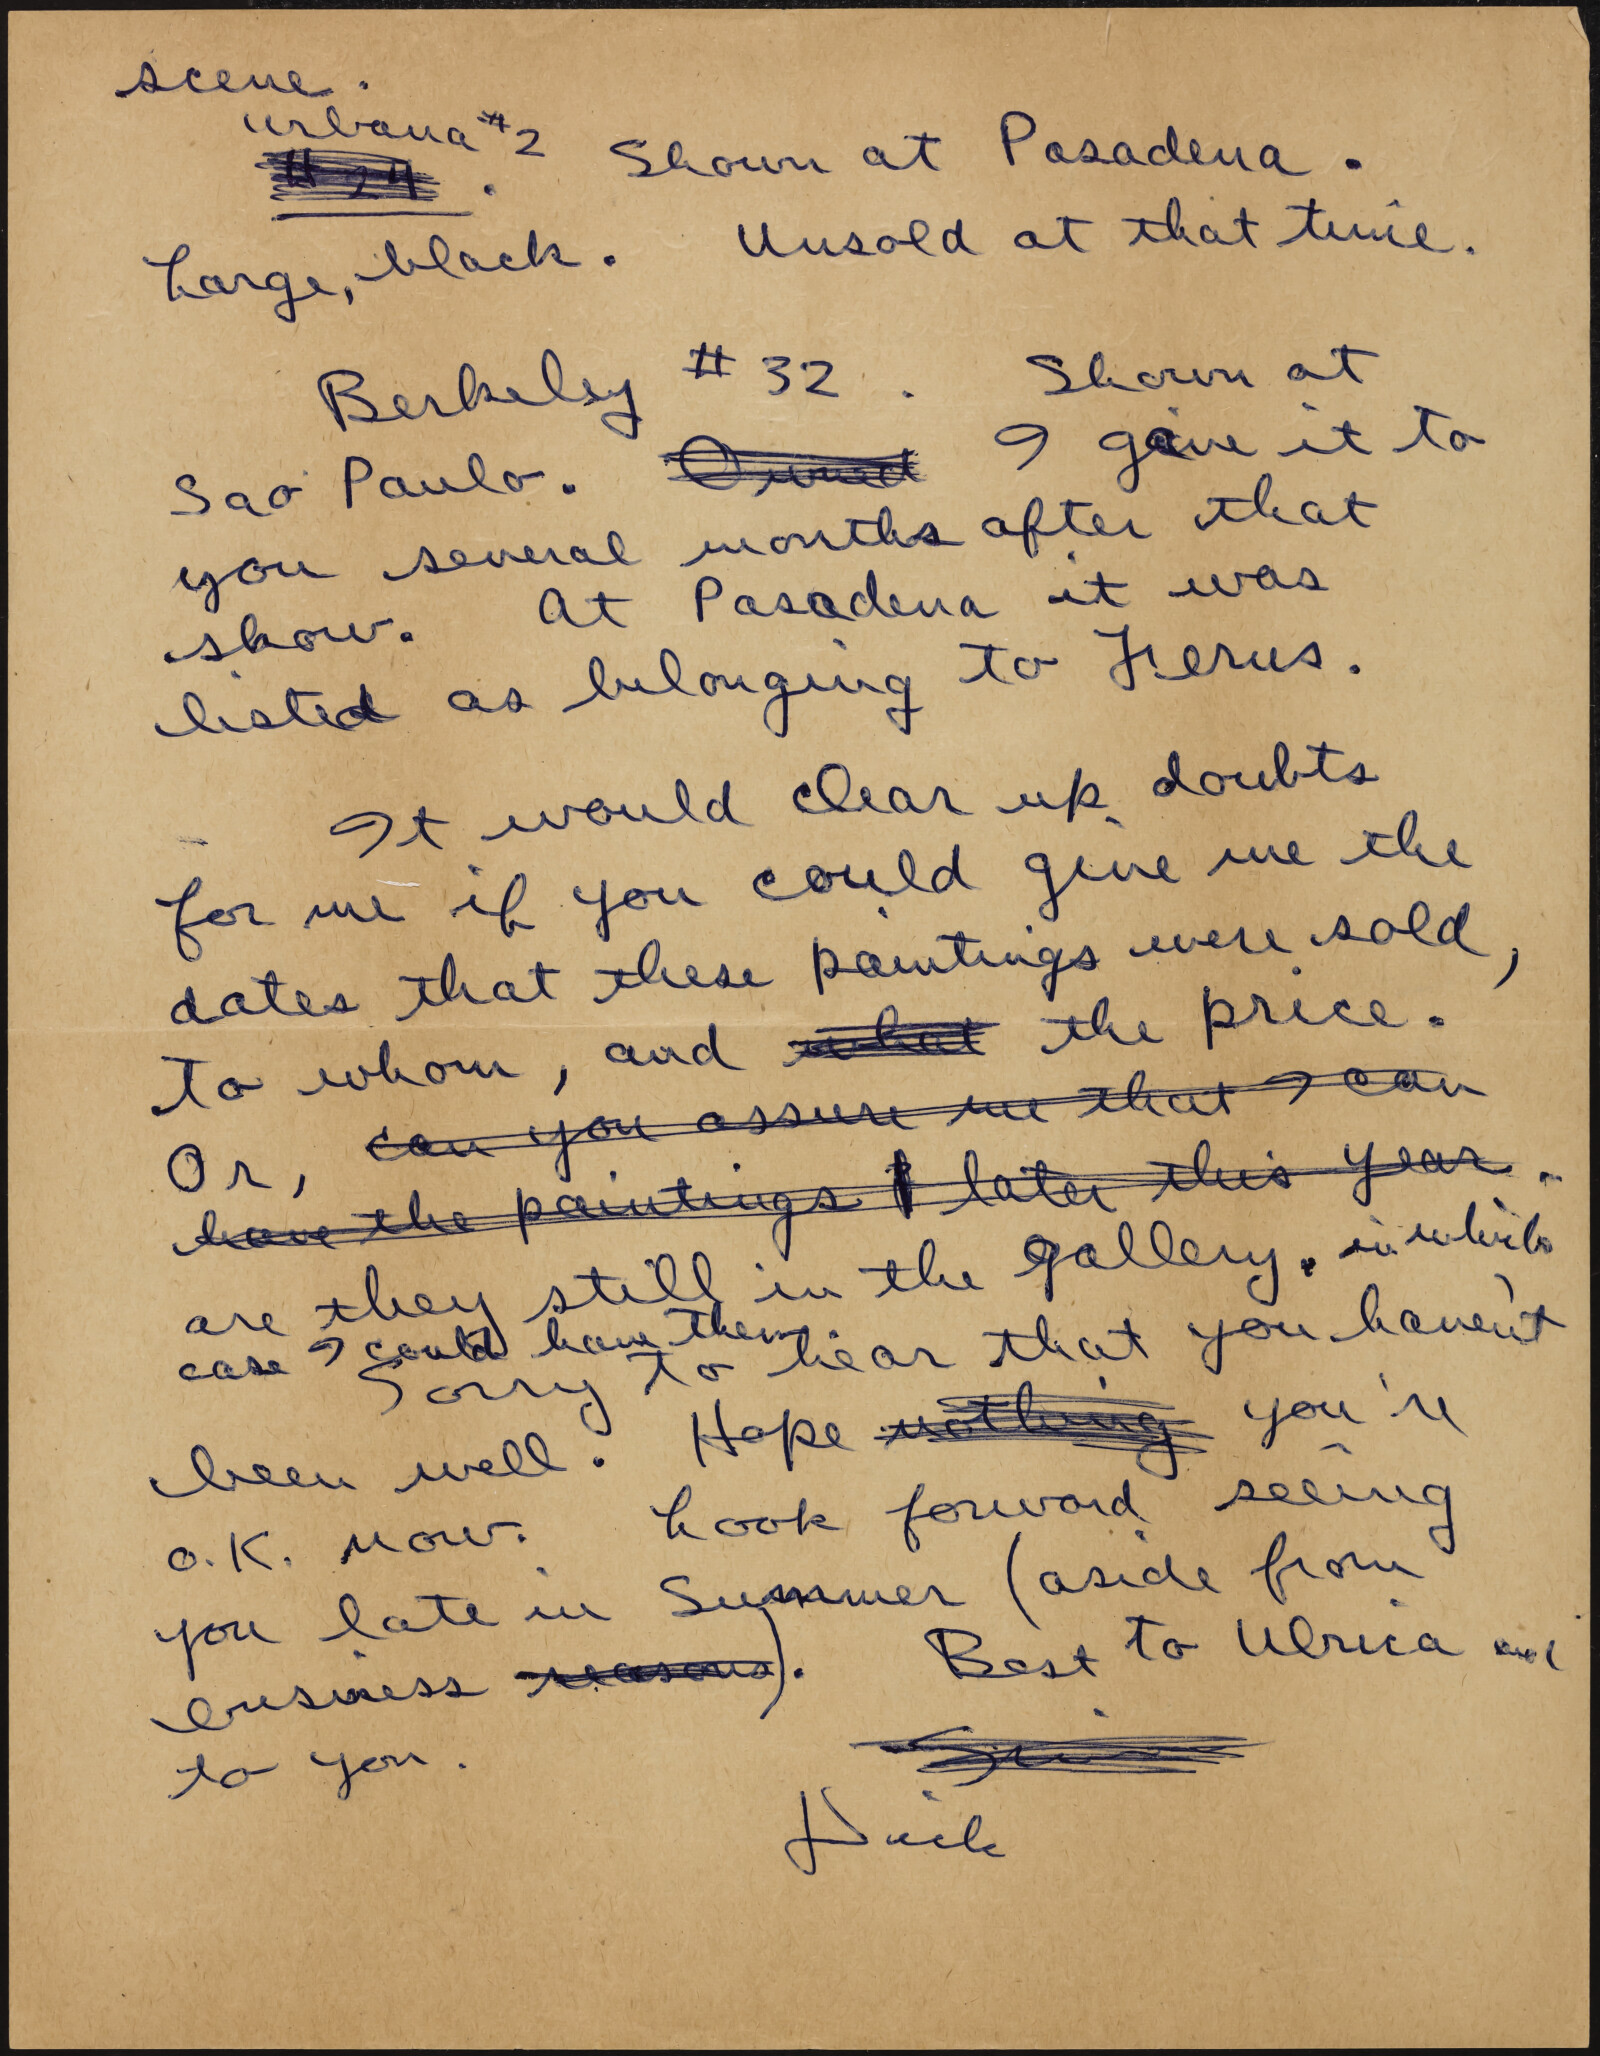 scene.
Urbana #2
#24. Shown at Pasadena.
Large, black. Unsold at that time.
Berkeley #32. Shown at
Sao Paulo. Owned I gave it to
you several months after that
show. At Pasadena it was
listed as belonging to Ferus.
It would clear up doubts
for me if you could give me the
dates that these paintings were sold,
to whom, and what the price.
Or, can you assure me that I can
have the paintings later this year.
are they still in the gallery, in which
case I could have them.
Sorry to hear that you haven't
been well. Hope nothing you're
O.K. now. Look forward seeing
you late in Summer (aside from
business reasons). Best to Ulrica and
to you.
Dick